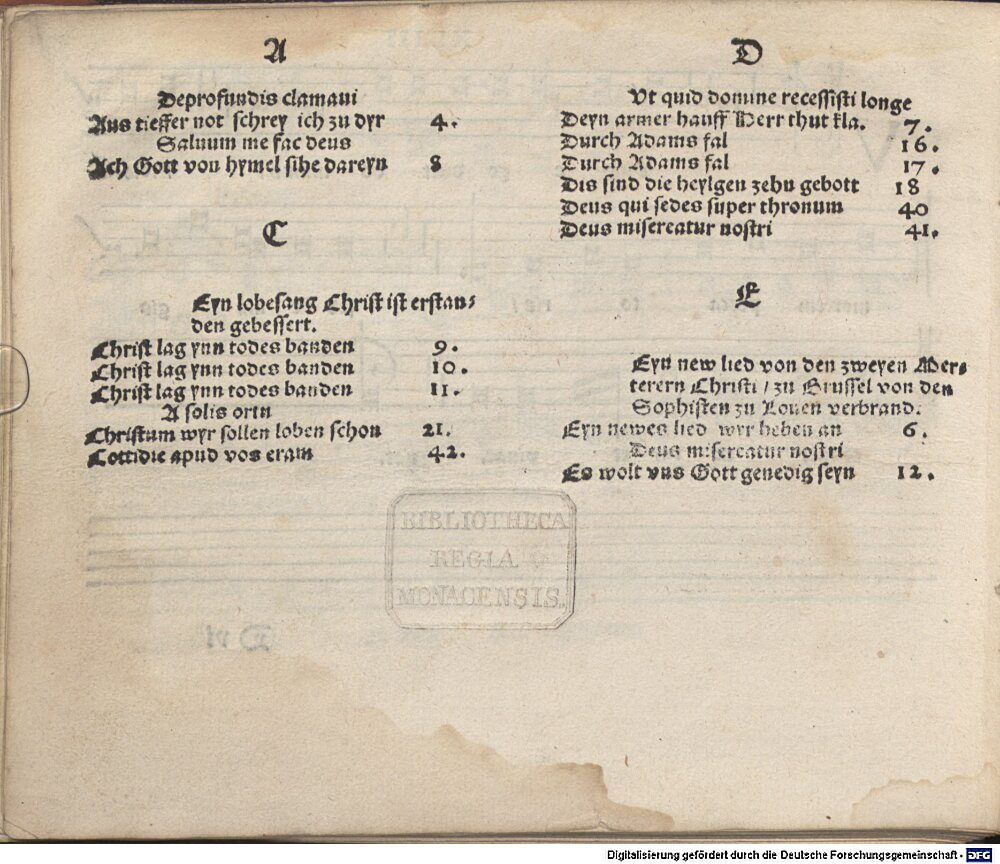 A
Deprofundis clamaui
Aus tieffer not schrey ich zu dyr 4.
Saluum me fac deus
Ach Gott von hymel sihe dareyn 8
C
Eyn lobesang Christ ist erstan⸗
den gebessert.
Christ lag ynn todes banden 9.
Christ lag ynn todes banden 10.
Christ lag ynn todes banden 11.
A solis ortu
Christum wyr sollen loben schon 21.
Cottidie apud vos eram 42.
D
Vt quid domine recessisti longe
Deyn armer hauff Herr thut kla. 7.
Durch Adams fal 16.
Durch Adams fal 17.
Dis sind die heylgen zehn gebott 18
Deus qui sedes super thronum 40
Deus misereatur nostri 41.
E
Eyn new lied von den zweyen Mer⸗
terern Christi / zu Brussel von den
Sophisten zu Louen verbrand.
Eyn newes lied wyr heben an 6.
Deus misereatur nostri
Es wolt vns Gott genedig seyn 12.
BIBLIOTHECA
REGIA
MONACENSIS.
Digitalisierung gefördert durch die Deutsche Forschungsgemeinschaft - DFG